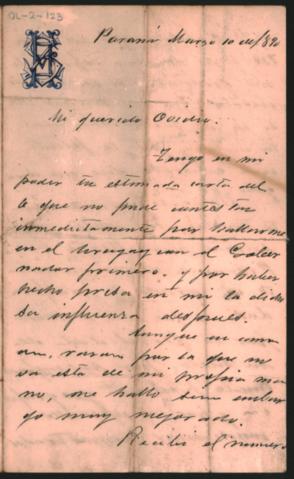 OL-2-123
Paraná Marzo 10 de/890
Mi querido Ovidio.
Tengo en mi
poder tu estimada carta del
6 que no pude contestar
inmediatamente por hallarme
en el Uruguay con el Gober
nador primero. y por haber
hecho presa en mi la dicho
sa influenza despues.
Aunque en cama
aun, razon por la que no
va esta de mi propia ma
no, me hallo sin embar
go muy mejorado.
Recibi el numero